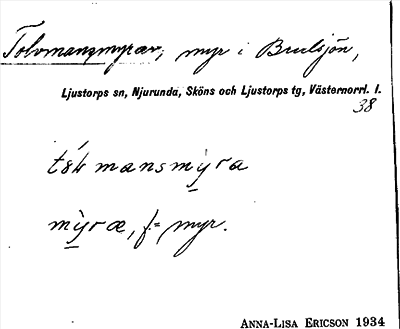 Tolvmansmyran, myr i Brulsjön,
Ljustorps sn, Njurunda, Sköns och Ljustorps tg, Västernorrl. l.
38
mansmyra
myræ, f = myr.
ANNA-LISA ERICSON 1934